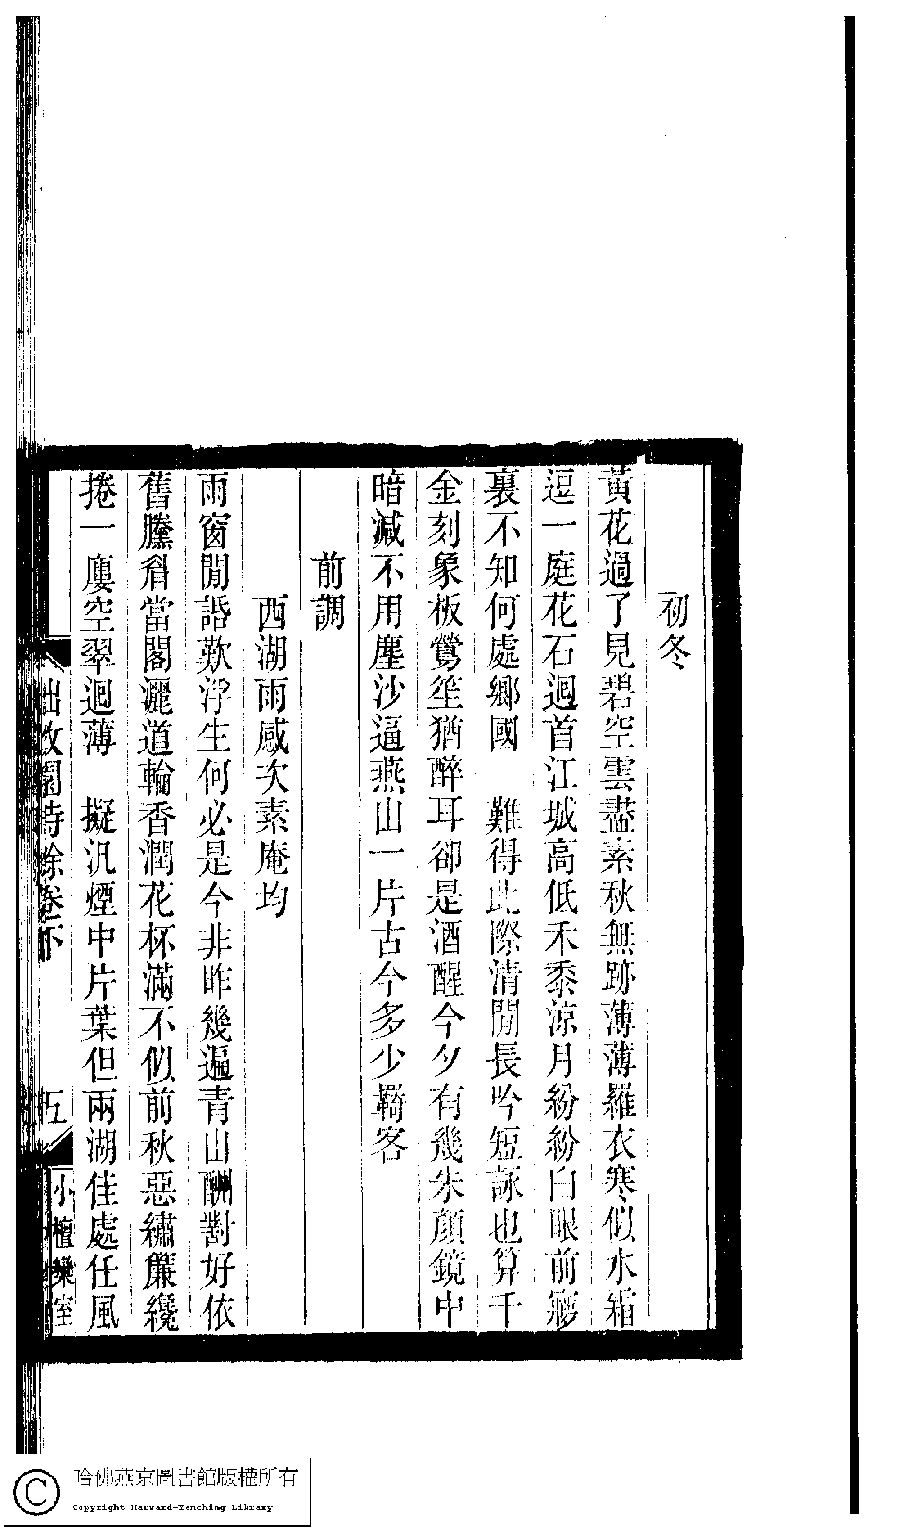 初冬
黃花過了見碧空雲盡素秋無跡薄薄羅衣寒似水霜
逗一庭花石迴首江城高低禾黍涼月紛紛白眼前夢
裏不知何處鄉國　難得此際清閒長吟短詠也算千
金刻象板鶯笙猶醉耳卻是酒醒今夕有幾朱顏鏡中
暗減不用塵沙逼燕山一片古今多少羈客
前調
西湖雨感次素庵均
雨窗閒話歎浮生何必是今非昨幾遍青山酬對好依
舊騰當閣灑道輪香潤花杯滿不似前秋惡繡簾纔
捲一廔空翠迴薄　擬汎煙中片葉但兩湖佳處任風
拙政園詩餘卷下
五
小檀欒室
哈佛燕京圖書館版權所有
Copyright Harvard-Yenching Library